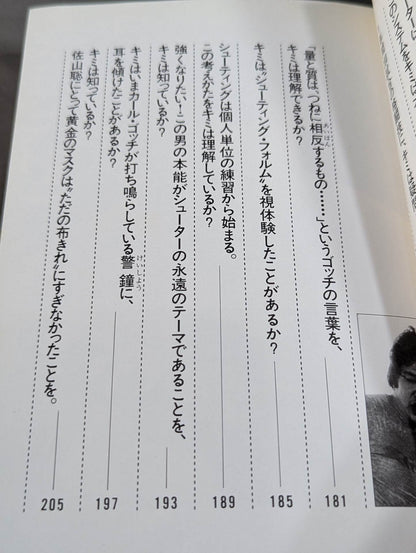 「量と質は、つねに相反するもの……」というゴッチの言葉を、
キミは理解できるか?
181
キミは“シューティング・フォルム”を視体験したことがあるか?
185
シューティングは個人単位の練習から始まる。
この考えかたをキミは理解しているか?
189
強くなりたい!この男の本能がシューターの永遠のテーマであることを、
キミは知っているか?
193
キミはいまカール・ゴッチが打ち鳴らしている警鐘に、
けいしょう
耳を傾けたことがあるか?
197
佐山聡にとって黄金のマスクは“ただの布きれ”にすぎなかったことを。
キミは知っているか?
205